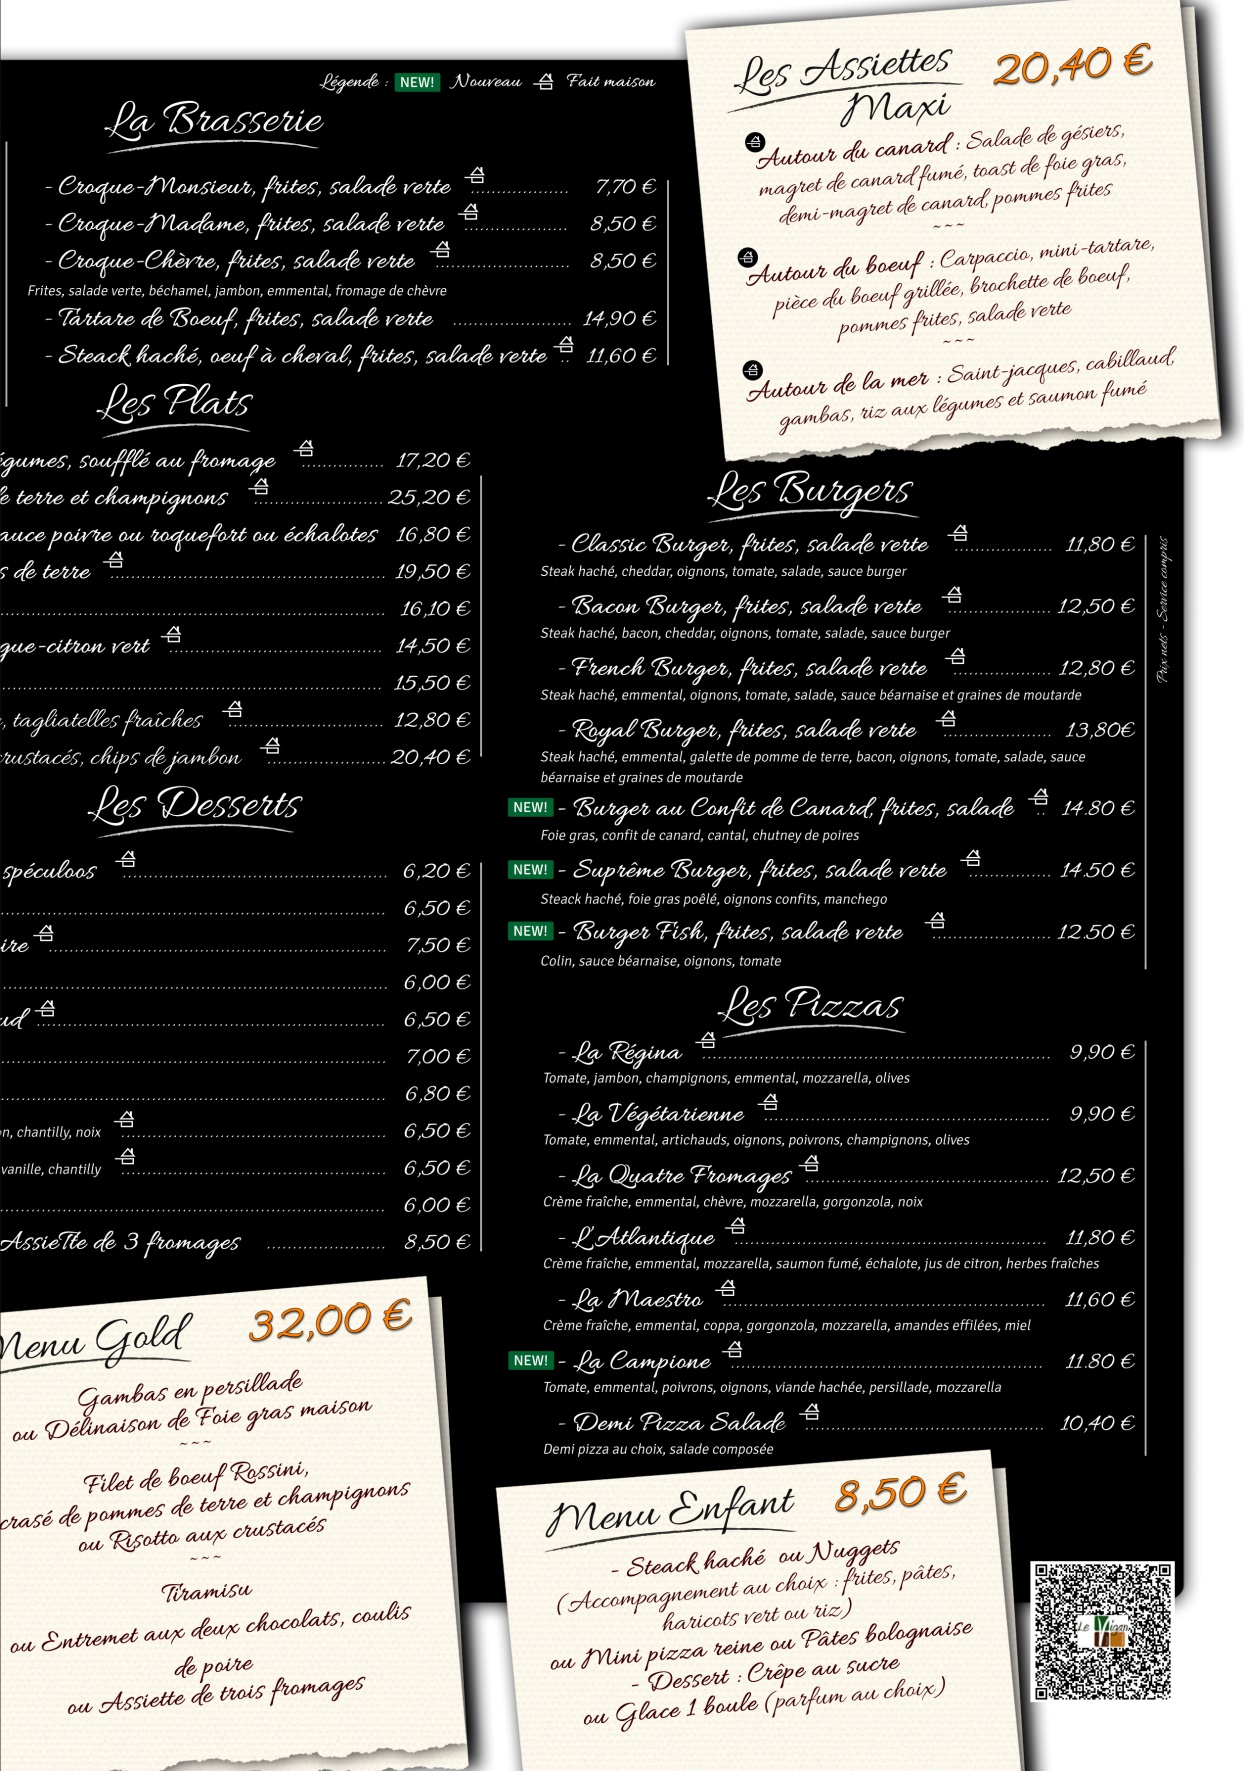 Légende : NEW! Nouveau Fait maison
La Brasserie
- Croque-Monsieur, frites, salade verte .................. 7,70 €
- Croque-Madame, frites, salade verte ................... 8,50 €
- Croque-Chèvre, frites, salade verte ........................ 8,50 €
Frites, salade verte, béchamel, jambon, emmental, fromage de chèvre
- Tartare de Boeuf, frites, salade verte ..................... 14,90 €
- Steack haché, oeuf à cheval, frites, salade verte .. 11,60 €
Les Plats
égumes, soufflé au fromage ............... 17,20 €
e terre et champignons ....................... 25,20 €
auce poivre ou roquefort ou échalotes 16,80 €
s de terre ................................................ 19,50 €
16,10 €
gue-citron vert ...................................... 14,50 €
15,50 €
, tagliatelles fraîches ............................ 12,80 €
crustacés, chips de jambon .................... 20,40 €
Les Desserts
spéculoos ................................................ 6,20 €
6,50 €
ire ............................................................ 7,50 €
6,00 €
ud ............................................................ 6,50 €
7,00 €
6,80 €
n, chantilly, noix ................................................ 6,50 €
vanille, chantilly ................................................ 6,50 €
6,00 €
Assiette de 3 fromages ..................... 8,50 €
Menu Gold 32,00 €
Gambas en persillade
ou Délinaison de Foie gras maison
~~~
Filet de boeuf Rossini,
crasé de pommes de terre et champignons
ou Risotto aux crustacés
~~~
Tiramisu
ou Entremet aux deux chocolats, coulis
de poire
ou Assiette de trois fromages
Les Assiettes 20,40 €
Maxi
Autour du canard : Salade de gésiers,
magret de canard fumé, toast de foie gras,
demi-magret de canard, pommes frites
~~~
Autour du boeuf : Carpaccio, mini-tartare,
pièce du boeuf grillée, brochette de boeuf,
pommes frites, salade verte
~~~
Autour de la mer : Saint-jacques, cabillaud,
gambas, riz aux légumes et saumon fumé
Les Burgers
- Classic Burger, frites, salade verte .................. 11,80 €
Steak haché, cheddar, oignons, tomate, salade, sauce burger
- Bacon Burger, frites, salade verte .................... 12,50 €
Steak haché, bacon, cheddar, oignons, tomate, salade, sauce burger
- French Burger, frites, salade verte ................... 12,80 €
Steak haché, emmental, oignons, tomate, salade, sauce béarnaise et graines de moutarde
- Royal Burger, frites, salade verte .................... 13,80€
Steak haché, emmental, galette de pomme de terre, bacon, oignons, tomate, salade, sauce
béarnaise et graines de moutarde
NEW! - Burger au Confit de Canard, frites, salade .. 14.80 €
Foie gras, confit de canard, cantal, chutney de poires
NEW! - Suprême Burger, frites, salade verte ................ 14.50 €
Steack haché, foie gras poêlé, oignons confits, manchego
NEW! - Burger Fish, frites, salade verte ...................... 12.50 €
Colin, sauce béarnaise, oignons, tomate
Prix nets - Service compris
Les Pizzas
- La Régina ................................................ 9,90 €
Tomate, jambon, champignons, emmental, mozzarella, olives
- La Végétarienne ........................................ 9,90 €
Tomate, emmental, artichauds, oignons, poivrons, champignons, olives
- La Quatre Fromages .................................. 12,50 €
Crème fraîche, emmental, chèvre, mozzarella, gorgonzola, noix
- L'Atlantique ............................................ 11,80 €
Crème fraîche, emmental, mozzarella, saumon fumé, échalote, jus de citron, herbes fraîches
- La Maestro .............................................. 11,60 €
Crème fraîche, emmental, coppa, gorgonzola, mozzarella, amandes effilées, miel
NEW! - La Campione ............................................ 11.80 €
Tomate, emmental, poivrons, oignons, viande hachée, persillade, mozzarella
- Demi Pizza Salade .................................... 10,40 €
Demi pizza au choix, salade composée
Menu Enfant 8,50 €
- Steack haché ou Nuggets
(Accompagnement au choix : frites, pâtes,
haricots vert ou riz)
ou Mini pizza reine ou Pâtes bolognaise
- Dessert : Crêpe au sucre
ou Glace 1 boule (parfum au choix)
Le Vigan